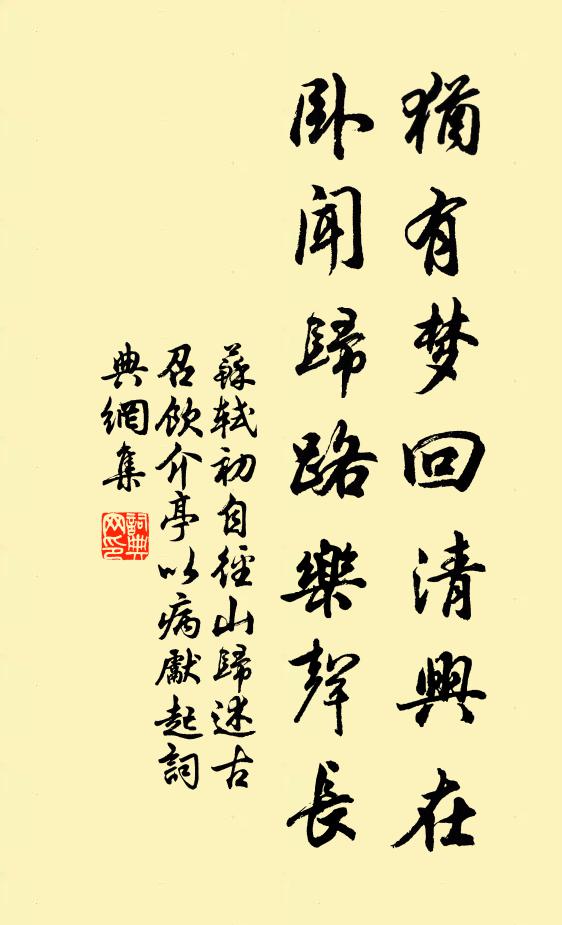 猶有梦回清興在
卧聞歸路樂聲長
蘇軾初自徑山歸述古
召飲介亭以病獻起詞
典網集
詞典
网印